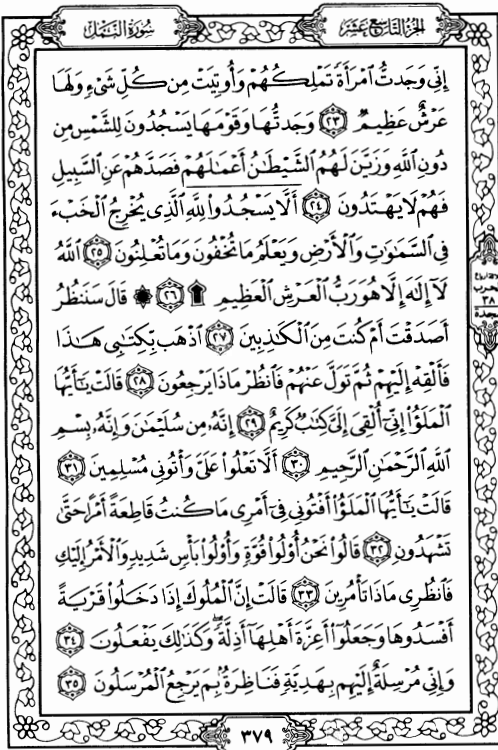 الجزء التاسع عشر
سورة النمل
إِنِّى وَجَدتُّ ٱمْرَأَةً تَمْلِكُهُمْ وَأُوتِيَتْ مِن كُلِّ شَىْءٍ وَلَهَا
عَرْشٌ عَظِيمٌ ٢٣ وَجَدتُّهَا وَقَوْمَهَا يَسْجُدُونَ لِلشَّمْسِ مِن
دُونِ ٱللَّهِ وَزَيَّنَ لَهُمُ ٱلشَّيْطَٰنُ أَعْمَٰلَهُمْ فَصَدَّهُمْ عَنِ ٱلسَّبِيلِ
فَهُمْ لَا يَهْتَدُونَ ٢٤ أَلَّا يَسْجُدُوا۟ لِلَّهِ ٱلَّذِى يُخْرِجُ ٱلْخَبْءَ
فِى ٱلسَّمَٰوَٰتِ وَٱلْأَرْضِ وَيَعْلَمُ مَا تُخْفُونَ وَمَا تُعْلِنُونَ ٢٥ ٱللَّهُ
لَآ إِلَٰهَ إِلَّا هُوَ رَبُّ ٱلْعَرْشِ ٱلْعَظِيمِ ۩ ٢٦ ۞ قَالَ سَنَنظُرُ
أَصَدَقْتَ أَمْ كُنتَ مِنَ ٱلْكَٰذِبِينَ ٢٧ ٱذْهَب بِّكِتَٰبِى هَٰذَا
فَأَلْقِهْ إِلَيْهِمْ ثُمَّ تَوَلَّ عَنْهُمْ فَٱنظُرْ مَاذَا يَرْجِعُونَ ٢٨ قَالَتْ يَٰٓأَيُّهَا
ٱلْمَلَؤُا۟ إِنِّىٓ أُلْقِىَ إِلَىَّ كِتَٰبٌ كَرِيمٌ ٢٩ إِنَّهُۥ مِن سُلَيْمَٰنَ وَإِنَّهُۥ بِسْمِ
ٱللَّهِ ٱلرَّحْمَٰنِ ٱلرَّحِيمِ ٣٠ أَلَّا تَعْلُوا۟ عَلَىَّ وَأْتُونِى مُسْلِمِينَ ٣١
قَالَتْ يَٰٓأَيُّهَا ٱلْمَلَؤُا۟ أَفْتُونِى فِىٓ أَمْرِى مَا كُنتُ قَاطِعَةً أَمْرًا حَتَّىٰ
تَشْهَدُونِ ٣٢ قَالُوا۟ نَحْنُ أُو۟لُوا۟ قُوَّةٍ وَأُو۟لُوا۟ بَأْسٍ شَدِيدٍ وَٱلْأَمْرُ إِلَيْكِ
فَٱنظُرِى مَاذَا تَأْمُرِينَ ٣٣ قَالَتْ إِنَّ ٱلْمُلُوكَ إِذَا دَخَلُوا۟ قَرْيَةً
أَفْسَدُوهَا وَجَعَلُوٓا۟ أَعِزَّةَ أَهْلِهَآ أَذِلَّةً ۖ وَكَذَٰلِكَ يَفْعَلُونَ ٣٤
وَإِنِّى مُرْسِلَةٌ إِلَيْهِم بِهَدِيَّةٍ فَنَاظِرَةٌۢ بِمَ يَرْجِعُ ٱلْمُرْسَلُونَ ٣٥
الحزب
٣٨
سجدة
٣٧٩